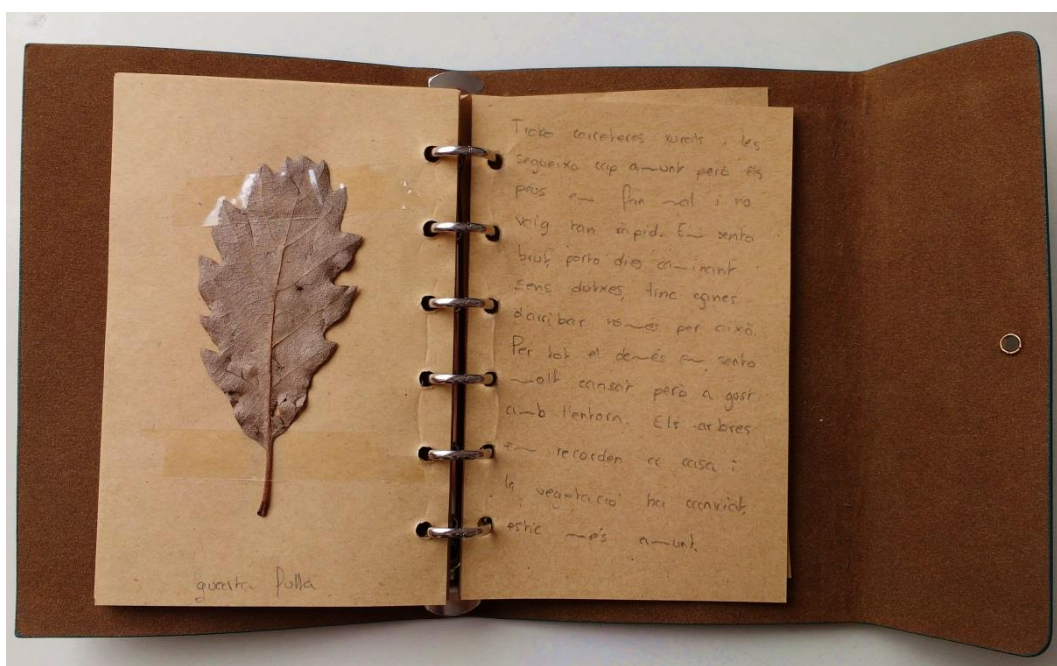 quarta fulla
Trobo carreteres rurals i les
segueixo cap amunt però els
peus em fan mal i no
vaig tan ràpid. Em sento
brut, porto dies caminant
sens dutxes, tinc ganes
d'arribar només per això.
Per tot el demés em sento
molt cansat però a gust
amb l'entorn. Els arbres
em recorden a casa i
la vegetació ha canviat,
estic més amunt.